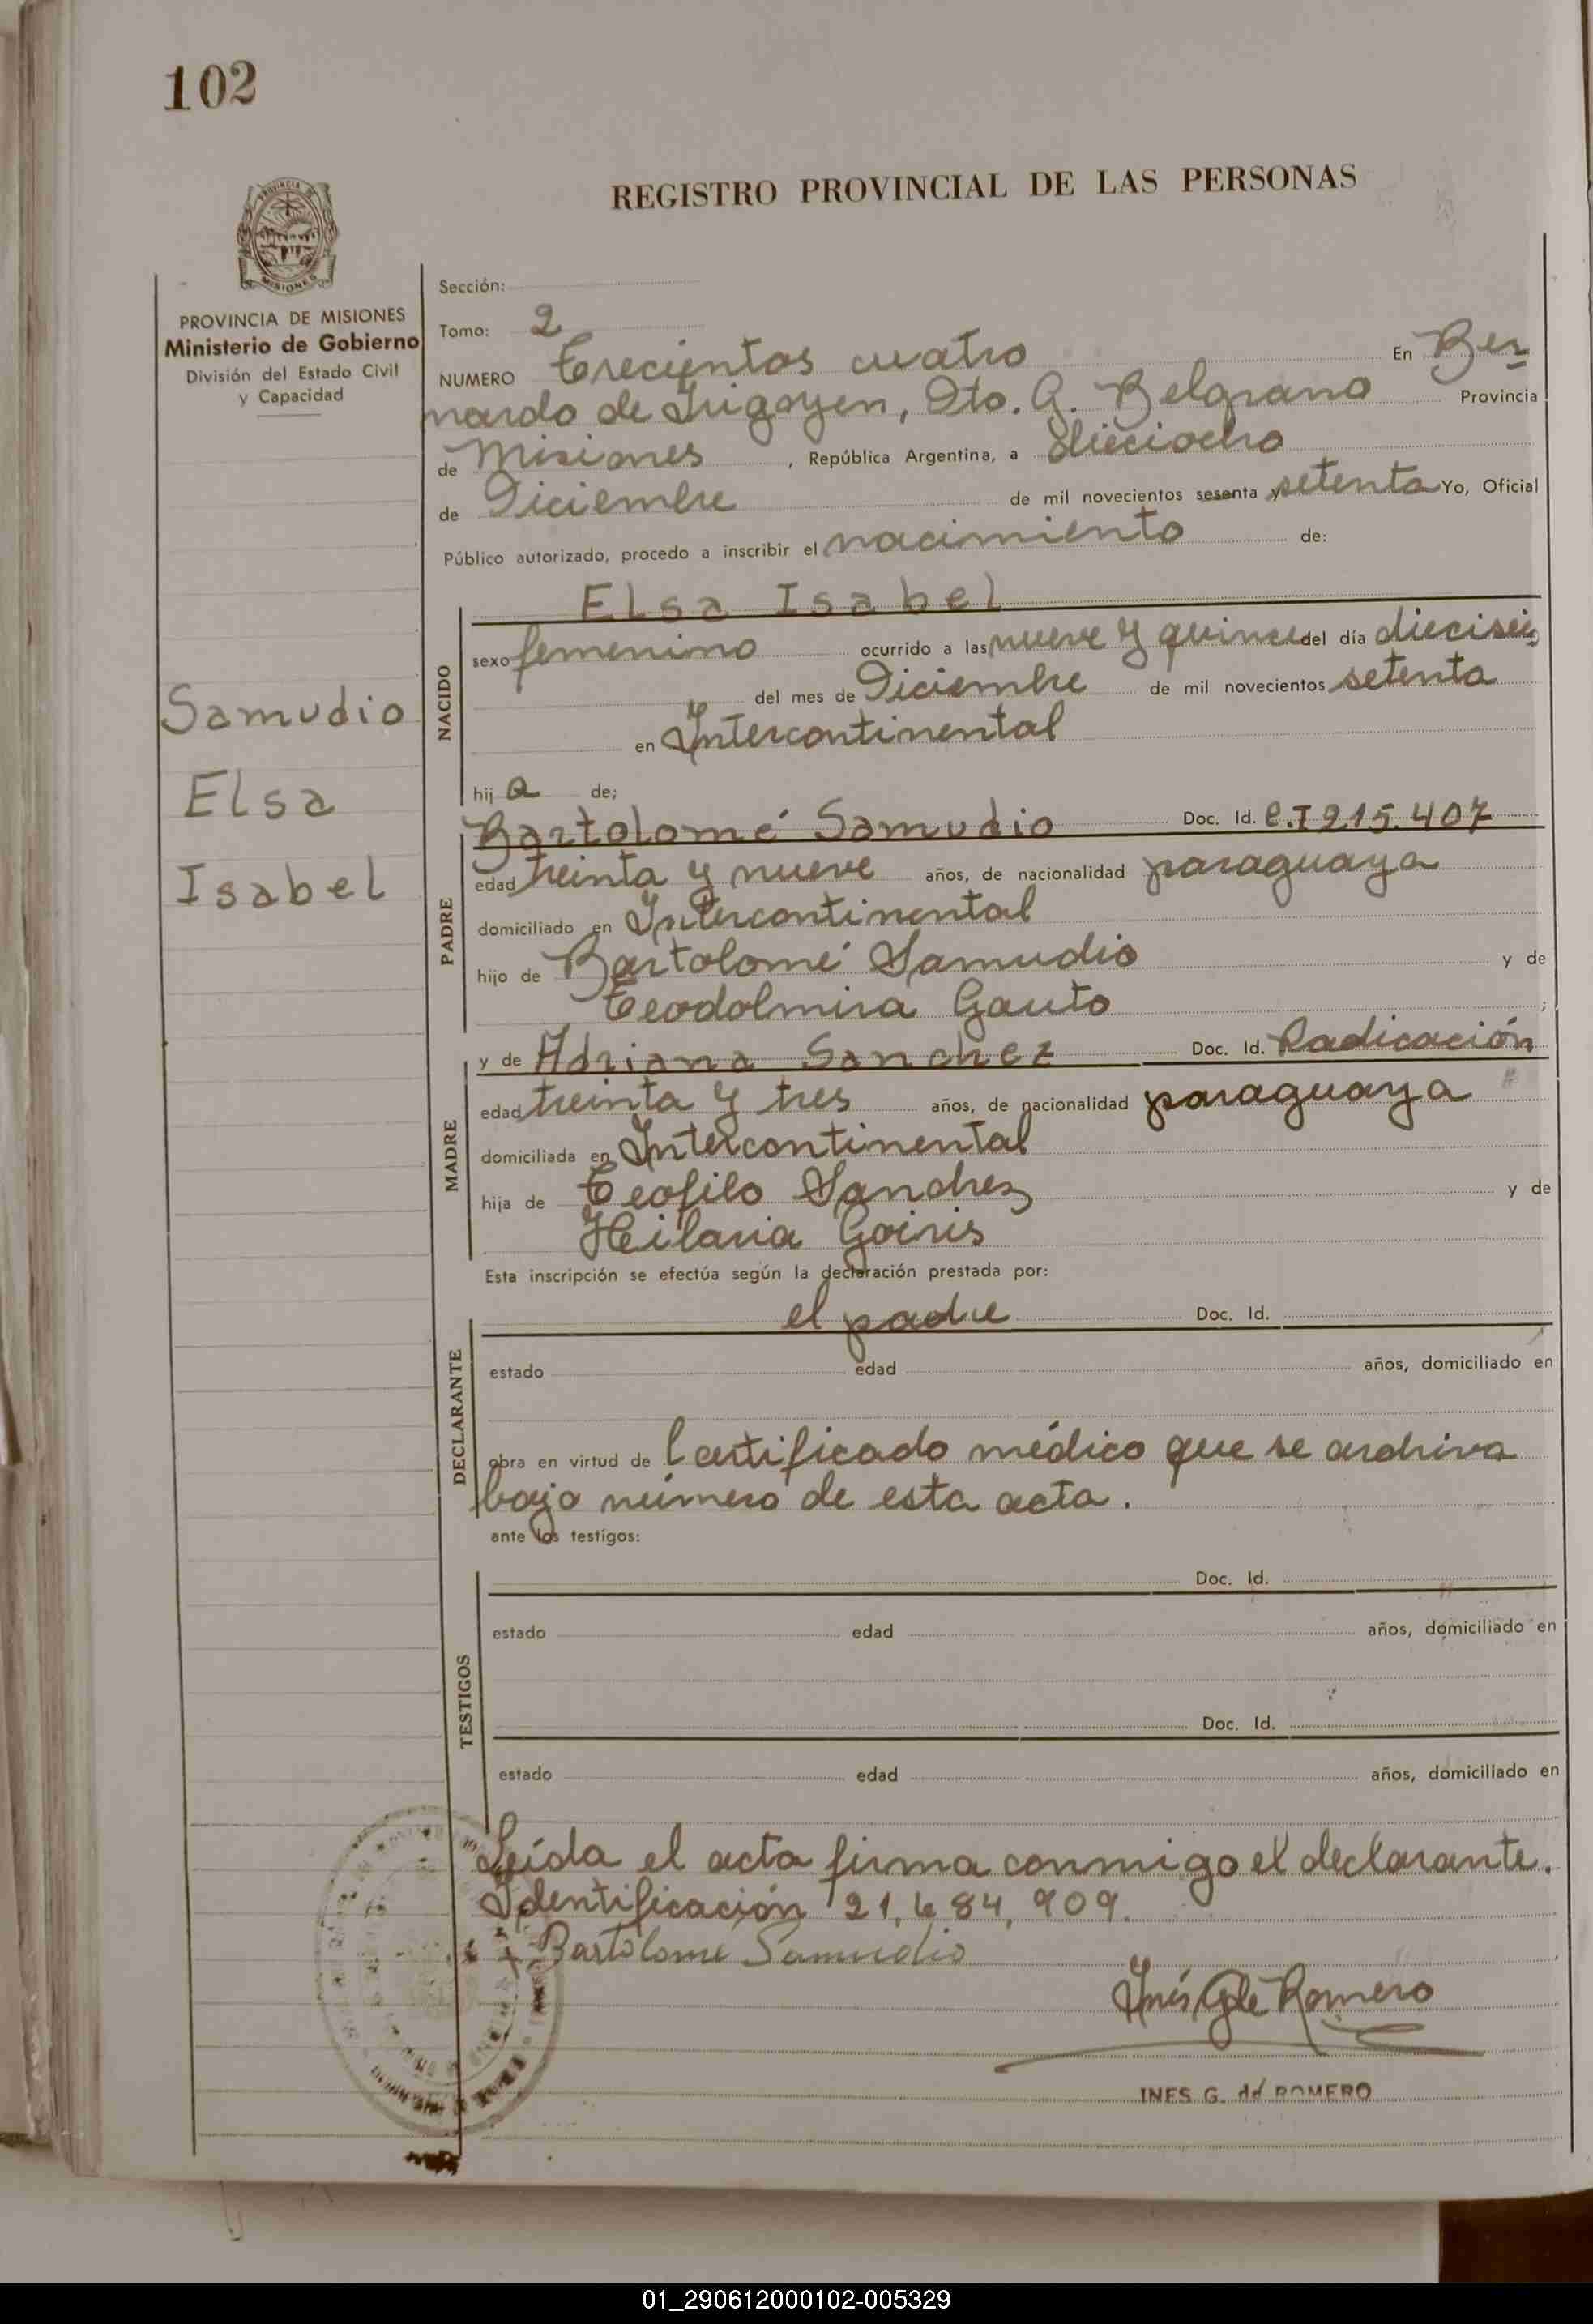 102
REGISTRO PROVINCIAL DE LAS PERSONAS
MISIONES
PROVINCIA DE MISIONES
Ministerio de Gobierno
División del Estado Civil
y Capacidad
Samudio
Elsa
Isabel
Sección:
Tomo: 2
NUMERO Trecientos cuatro En Ber
nardo de Irigoyen, Dto. G. Belgrano Provincia
de Misiones, República Argentina, a dieciocho
de Diciembre de mil novecientos sesenta y setenta Yo, Oficial
Público autorizado, procedo a inscribir el nacimiento de:
Elsa Isabel
NACIDO
sexo femenino ocurrido a las nueve y quince del día dieciseis
del mes de Diciembre de mil novecientos setenta
en Intercontinental
hij a de;
PADRE
Bartolomé Samudio Doc. Id. C.I 215.407
edad treinta y nueve años, de nacionalidad paraguaya
domiciliado en Intercontinental
hijo de Bartolomé Samudio y de
Teodolmira Gauto ;
MADRE
y de Adriana Sanchez Doc. Id. Radicación
edad treinta y tres años, de nacionalidad paraguaya
domiciliada en Intercontinental
hija de Teofilo Sanchez y de
Hilaria Goiris
Esta inscripción se efectúa según la declaración prestada por:
DECLARANTE
el padre Doc. Id.
estado edad años, domiciliado en
obra en virtud de Certificado médico que se archiva
bajo número de esta acta.
ante los testigos:
TESTIGOS
Doc. Id.
estado edad años, domiciliado en
Doc. Id.
estado edad años, domiciliado en
Leída el acta firma conmigo el declarante.
Identificación 21,684,909.
Bartolomé Samudio
Inés G de Romero
INES G. de ROMERO
01_290612000102-005329